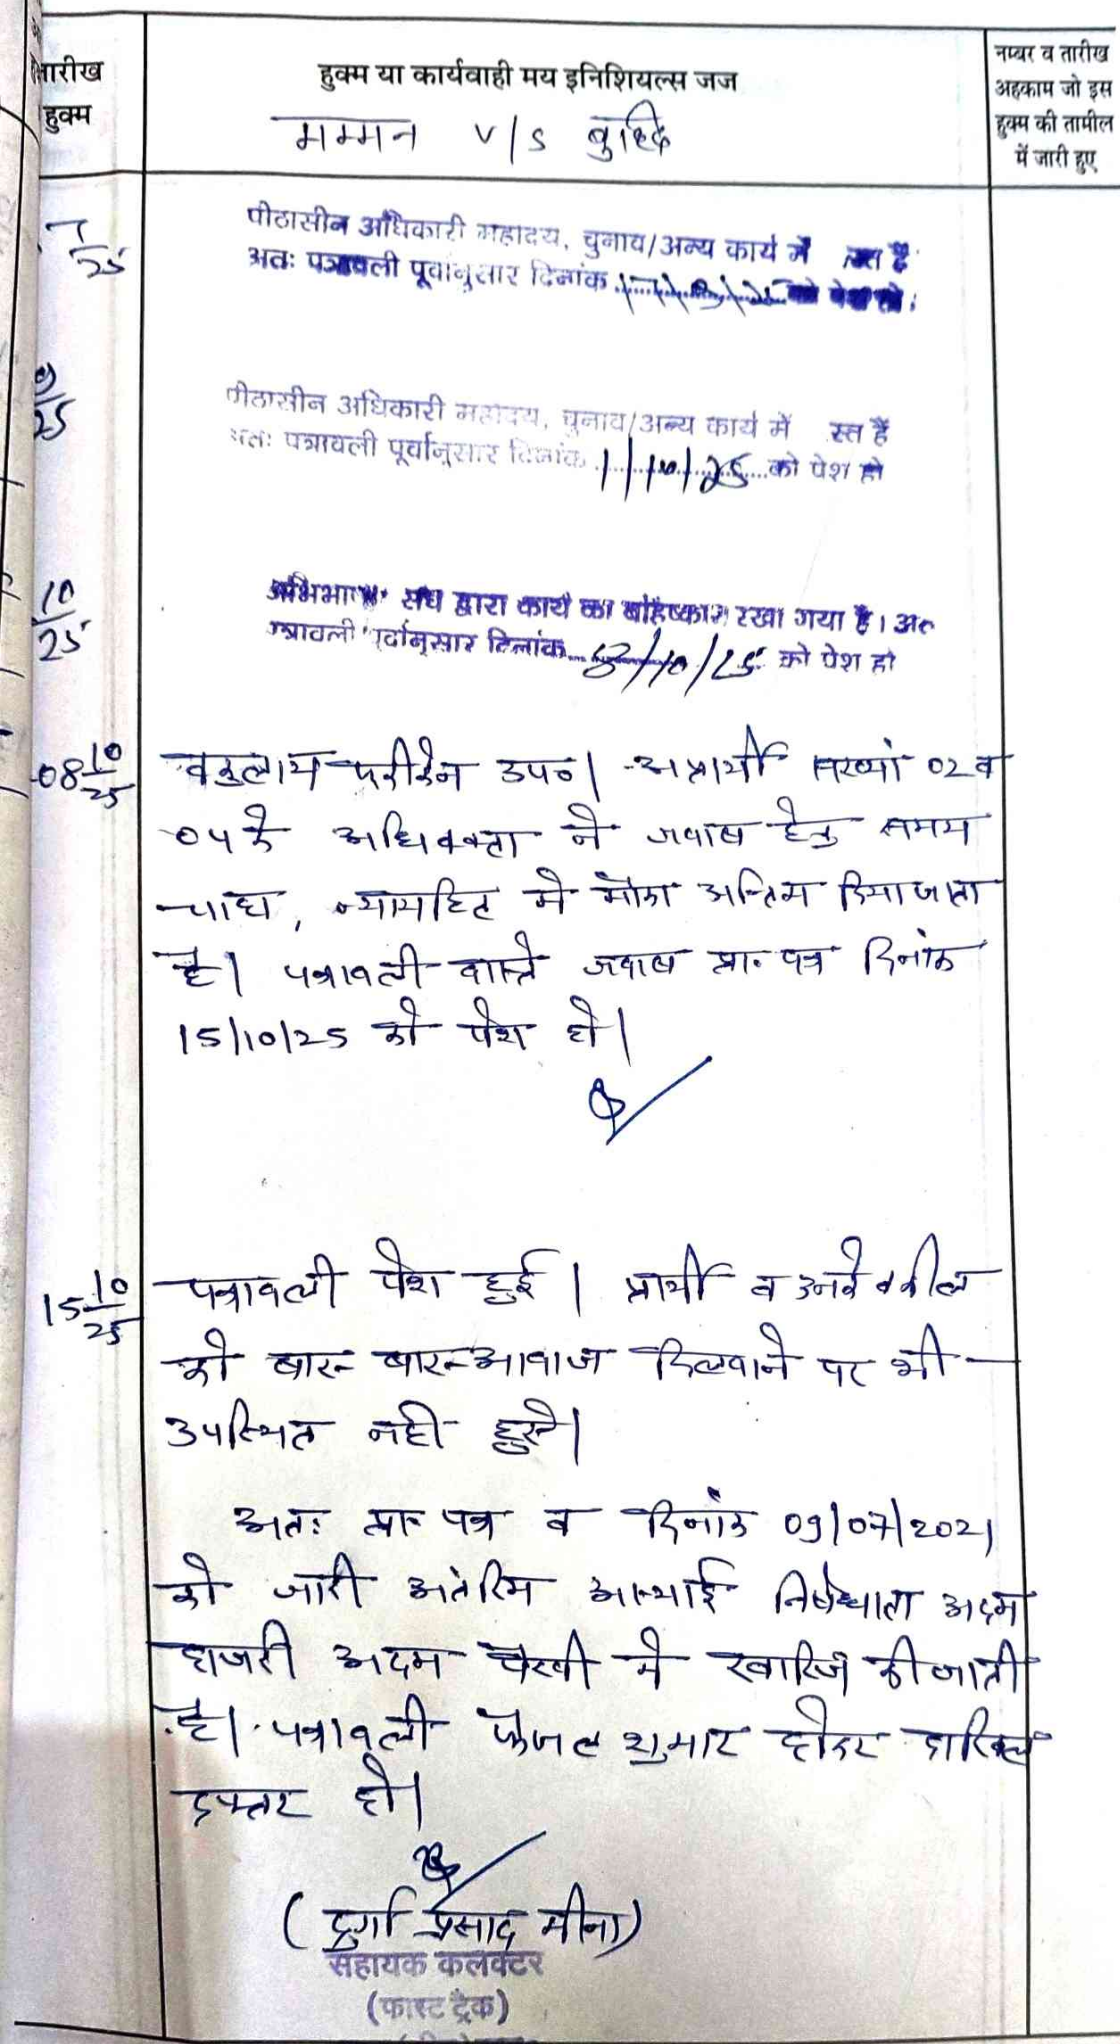 तारीख
हुक्म
हुक्म या कार्यवाही मय इनिशियल्स जज
नम्बर व तारीख
अहकाम जो इस
हुक्म की तामील
में जारी हुए
मम्मन v/s बुद्धि
7/25
पीठासीन अधिकारी महोदय, चुनाव/अन्य कार्य में स्त है
अतः पत्रावली पूर्वानुसार दिनांक
9/25
पीठासीन अधिकारी महोदय, चुनाव/अन्य कार्य में स्त हैं
अतः पत्रावली पूर्वानुसार दिनांक 1/10/25 को पेश हो
10/25
संघ द्वारा कार्य का बहिष्कार रखा गया है। अत
त्रावली पूर्वानुसार दिनांक 8/10/25 को पेश हो
08 10/25
वकुलाय फरीकेन उप०। अप्रार्थी संख्यां 02 व
04 के अधिवक्ता ने जवाब हेतु समय
चाहा, न्यायहित मे मौका अन्तिम दिया जाता
है। पत्रावली वास्ते जवाब प्रा. पत्र दिनांक
15/10/25 को पेश हो।
15 10/25
पत्रावली पेश हुई। प्रार्थी व उनके वकील
को बार-बार आवाज दिलवाने पर भी
उपस्थित नही हुये।
अतः प्रा. पत्र व दिनांक 09/07/2021
को जारी अंतरिम अस्थाई निषेधाज्ञा अदम
हाजरी अदम पैरवी मे खारिज की जाती
है। पत्रावली फैजल शुमार होकर दाखिल
दफ्तर हो।
(दुर्गा प्रसाद मीना)
सहायक कलक्टर
(फास्ट ट्रैक)